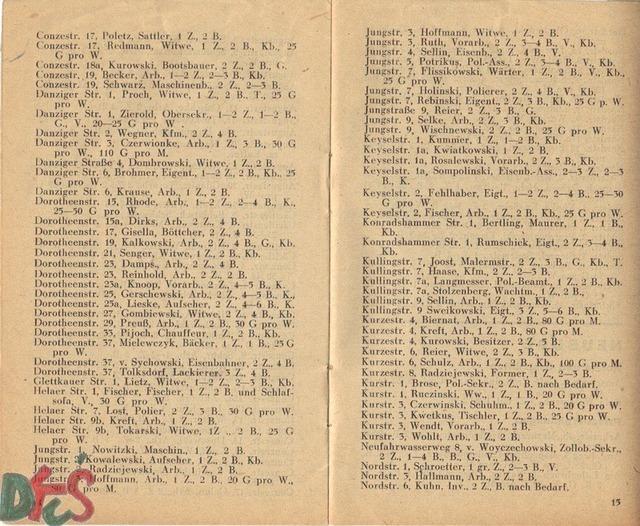 Conzestr. 17, Poletz, Sattler, 1 Z., 2 B.
Conzestr. 17, Redmann, Witwe, 1 Z., 2 B., Kb., 25
G pro W.
Conzestr. 18a, Kurowski, Bootsbauer, 2 Z., 2 B., G.
Conzestr. 19, Becker, Arb., 1—2 Z., 2—3 B., Kb.
Conzestr. 19, Schwarz, Maschinenb., 2 Z., 2—3 B.
Danziger Str. 1, Proch, Witwe, 1 Z., 2 B., T., 25 G
pro W.
Danziger Str. 1, Zierold, Obersekr., 1—2 Z., 1—2 B.,
G., V., 20—25 G pro W
Danziger Str. 2, Wegner, Kfm., 2 Z., 4 B.
Danziger Str. 3, Czerwionke, Arb., 1 Z., 3 B., 30 G
pro W., 110 G pro M.
Danziger Straße 4, Dombrowski, Witwe, 1 Z., 2 B.
Danziger Str. 6, Brohmer, Eigent., 1—2 Z., 2 B., Kb., 25
G pro W.
Danziger Str. 6, Krause, Arb., 1 Z., 2 B.
Dorotheenstr. 15, Rhode, Arb., 1—2 Z., 2—4 B., K.,
25—30 G pro W.
Dorotheenstr. 15a, Dirks, Arb., 2 Z., 4 B.
Dorotheenstr. 17, Gisella, Böttcher, 2 Z., 4 B.
Dorotheenstr. 19, Kalkowski, Arb., 2 Z., 4 B., G., Kb.
Dorotheenstr. 21, Senger, Witwe, 1 Z., 2 B., Kb.
Dorotheenstr. 23, Damps, Arb., 2 Z., 4 B.
Dorotheenstr. 23, Reinhold, Arb., 2 Z., 2 B.
Dorotheenstr. 23a, Knoop, Vorarb., 2 Z., 4—5 B., K.
Dorotheenstr. 25, Gerschewski, Arb., 2 Z., 4—5 B., K.,
Dorotheenstr. 25a, Lieske, Aufseher, 2 Z., 4—6 B., K.
Dorotheenstr. 27, Gombiewski, Witwe, 2 Z., 2 B., Kb.
Dorotheenstr. 29, Preuß, Arb., 1 Z., 2 B., 30 G pro W.
Dorotheenstr. 33, Pijoch, Chauffeur, 1 Z., 2 B., Kb.
Dorotheenstr. 37, Mielewczyk, Bäcker, 1 Z., 1 B., 25 G
pro W.
Dorotheenstr. 37, v. Sychowski, Eisenbahner, 2 Z., 4 B.
Dorotheenstr. 37, Tolksdorf, Lackierer, 3 Z., 4 B.
Glettkauer Str. 1, Lietz, Witwe, 1—2 Z., 2—3 B., Kb.
Helaer Str. 1, Fischer, Fischer, 1 Z., 2 B. und Schlaf-
sofa, V., 30 G pro W.
Helaer Str. 7, Lost, Polier, 2 Z., 3 B., 30 G pro W.
Helaer Str. 9b, Kreft, Arb., 1 Z., 2 B.
Helaer Str. 9b, Tokarski, Witwe, 1Z ., 2 B., 25 G
pro W.
Jungstr. Nowitzki, Maschin., 1 Z., 2 B.
Jungstr. Kowalewski, Aufseher, 1 Z., 2 B., Kb.
Radziejewski, Arb., 1 Z., 2 B.
Hoffmann, Arb., 1 Z., 2 B., 20 G pro W.,
pro M.
DFcS
Jungstr. 3, Hoffmann, Witwe, 1 Z., 2 B.
Jungstr. 3, Ruth, Vorarb., 2 Z., 3—4 B., V., Kb.
Jungstr. 4, Sellin, Eisenb., 2 Z., 4 B., V.
Jungstr. 5, Potrikus, Pol.-Ass., 2 Z., 3—4 B., V., Kb.
Jungstr. 7, Flissikowski, Wärter, 1 Z., 2 B., V., Kb.,
25 G pro W.
Jungstr. 7, Holinski, Polierer, 2 Z., 4 B., V., Kb.
Jungstr. 7, Rebinski, Eigent., 2 Z., 3 B., Kb., 25 G p. W.
Jungstraße 9, Reier, 2 Z., 3 B., G.
Jungstr. 9, Selke, Arb., 2 Z., 3 B., Kb.
Jungstr. 9, Wischnewski, 2 Z., 2 B., 25 G pro W.
Keyselstr. 1, Kummer, 1 Z., 1—2 B., Kb.
Keyselstr. 1a, Kwiatkowski, 1 Z., 2 B.
Keyselstr. 1a, Rosalewski, Vorarb., 2 Z., 3 B., Kb.
Keyselstr. 1a, Sompolinski, Eisenb.-Ass., 2—3 Z., 2—3
B., K.
Keyselstr. 2, Fehlhaber, Eigt., 1—2 Z., 2—4 B., 25—30
G pro W.
Keyselstr. 2, Fischer, Arb., 1 Z., 2 B., Kb., 25 G pro W.
Konradshammer Str. 1, Bertling, Maurer, 1 Z., 1 B.,
Kb.
Konradshammer Str. 1, Rumschick, Eigt., 2 Z., 3—4 B.,
Kb.
Kullingstr. 7, Joost, Malermstr., 2 Z., 3 B., G., Kb., T.
Kullingstr. 7, Haase, Kfm., 2 Z., 2—3 B.
Kullingstr. 7a, Langmesser, Pol.-Beamt., 1 Z., 1 B., Kb.
Kullingstr. 7a, Stolzenberg, Wachtm., 1 Z., 2 B.,
Kullingstr. 9, Sellin, Arb., 1 Z., 2 B., Kb.
Kullingstr. 9 Sweikowski, Eigt., 3 Z., 5—6 B., Kb.
Kurzestr. 4, Biernat, Arb., 1 Z., 2 B., 80 G pro M.
Kurzestr. 4, Kreft, Arb., 1 Z., 2 B., 80 G pro M.
Kurzestr. 4, Kurowski, Besitzer, 2 Z., 5 B.
Kurzestr. 6, Reier, Witwe, 2 Z., 3 B., Kb.
Kurzestr. 6, Schulz, Arb., 1 Z., 2 B., Kb., 100 G pro M.
Kurzestr. 8, Radziejewski, Former, 1 Z., 2—3 B.
Kurstr. 1, Brose, Pol.-Sekr., 2 Z., B. nach Bedarf.
Kurstr. 1, Ruczinski, Ww., 1 Z., 1 B., 20 G pro W.
Kurstr. 3, Czerwinski, Schuhm., 1 Z., 2 B., 20 G pro W.
Kurstr. 3, Kwetkus, Tischler, 1 Z., 2 B., 25 G pro W.
Kurstr. 3, Wendt, Vorarb., 1 Z., 2 B.
Kurstr. 3, Wohlt, Arb., 1 Z., 2 B.
Neufahrwasserweg 8, v. Woyczechowski, Zollob.-Sekr.,
2 Z., 1—4 B., B., G., V., Kb.
Nordstr. 1, Schroetter, 1 gr. Z., 2—3 B., V.
Nordstr. 3, Hallmann, Arb., 2 Z., 2 B.
Nordstr. 6, Kuhn, Inv., 2 Z., B. nach Bedarf.
15